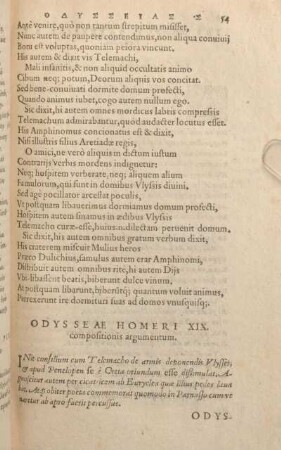 ΟΔΥΣΣΕΙΑΣ Σ 54
Argè venire, quò non tantum strepitum misisset,
Nunc autem de paupere contendimus, non aliqua conuiuij
Boni est voluptas, quoniam peiora vincunt.
His autem & dixit vis Telemachi,
Mali insanitis, & non aliquid occultatis animo
Cibum neq; potum, Deorum aliquis vos concitat.
Sed bene conuiuati dormite domum profecti,
Quando animus iubet, cogo autem nullum ego.
Sic dixit, hi autem omnes mordicus labeis compressis
Telemachum admirabantur, quod audacter locutus esset.
His Amphinomus concionatus est & dixit,
Nisi illustris filius Aretiadæ regis,
O amici, ne verò aliquis in dictum iustum
Contrarijs verbis mordens indignetur:
Neq; hospitem verberate, neq; aliquem alium
Famulorum, qui sunt in domibus Vlyssis diuini,
Sed age pocillator arcessat poculis,
Vt postquam libauerimus dormiamus domum profecti,
Hospitem autem sinamus in ædibus Vlyssis
Telemacho curæ esse, huius dilectam peruenit domum.
Sic dixit, his autem omnibus gratum verbum dixit,
His craterem miscuit Mulius heros
Præco Dulichius, famulus autem erat Amphinomi,
Distribuit autem omnibus ritè, hi autem Dijs
Vbi libassent beatis, biberunt dulce vinum,
At postquam libarunt, biberuntq; quantum voluit animus,
Perrexerunt ire dormituri suas ad domos vnusquisq;.
ODYSSEAE HOMERI XIX.
compositionis argumentum.
INit consilium cum Telemacho de armis deponendis Vlysses,
& apud Penelopen se è Creta oriundum esse dissimulat. A-
gnoscitur autem per cicatricem ab Euryclea quæ illius pedes laua
bat. At obiter poeta commemorat quomodo in Parnasso cum ve
naretur ab apro fuerit percussus.
ODYS-